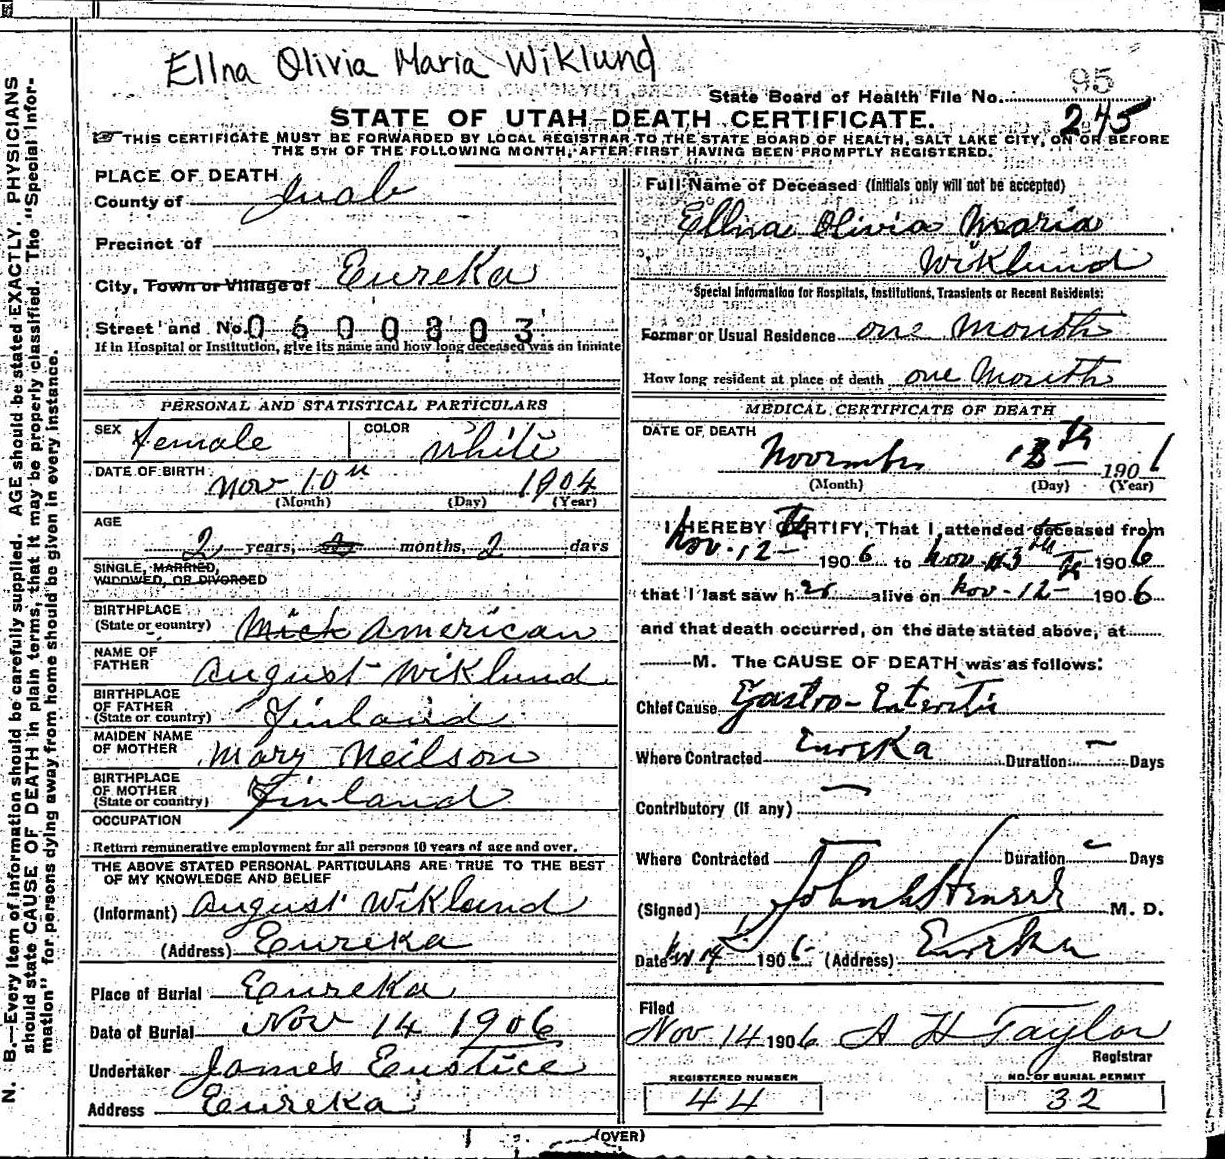 Ellna Olivia Maria Wiklund
95
State Board of Health File No.
245
STATE OF UTAH—DEATH CERTIFICATE.
THIS CERTIFICATE MUST BE FORWARDED BY LOCAL REGISTRAR TO THE STATE BOARD OF HEALTH, SALT LAKE CITY, ON OR BEFORE
THE 5TH OF THE FOLLOWING MONTH, AFTER FIRST HAVING BEEN PROMPTLY REGISTERED.
N. B.—Every item of information should be carefully supplied. AGE should be stated EXACTLY. PHYSICIANS
should state CAUSE OF DEATH in plain terms, that it may be properly classified. The "Special Infor-
mation" for persons dying away from home should be given in every instance.
PLACE OF DEATH
County of Juab
Precinct of
City, Town or Village of Eureka
Street and No. 0600303
If in Hospital or Institution, give its name and how long deceased was an inmate
PERSONAL AND STATISTICAL PARTICULARS
SEX female COLOR White
DATE OF BIRTH Nov 10th 1904
(Month) (Day) (Year)
AGE
2 years, months, 2 days
SINGLE, MARRIED,
WIDOWED, OR DIVORSED
BIRTHPLACE
(State or country) Mich American
NAME OF
FATHER August Wiklund
BIRTHPLACE
OF FATHER
(State or country) Finland
MAIDEN NAME
OF MOTHER Mary Neilson
BIRTHPLACE
OF MOTHER
(State or country) Finland
OCCUPATION
Return remunerative employment for all persons 10 years of age and over.
THE ABOVE STATED PERSONAL PARTICULARS ARE TRUE TO THE BEST
OF MY KNOWLEDGE AND BELIEF
(Informant) August Wiklund
(Address) Eureka
Place of Burial Eureka
Date of Burial Nov 14 1906
Undertaker James Eustice
Address Eureka
Full Name of Deceased (Initials only will not be accepted)
Ellna Olivia Maria
Wiklund
Special Information for Hospitals, Institutions, Transients or Recent Residents:
Former or Usual Residence one Month
How long resident at place of death one Month
MEDICAL CERTIFICATE OF DEATH
DATE OF DEATH
November 13th 1906
(Month) (Day) (Year)
I HEREBY CERTIFY, That I attended deceased from
Nov. 12th 1906 to Nov 13th 1906
that I last saw her alive on Nov-12th 1906
and that death occurred, on the date stated above, at
M. The CAUSE OF DEATH was as follows:
Chief Cause Gastro-Enteritis
Where Contracted Eureka Duration — Days
Contributory (if any) —
Where Contracted — Duration — Days
(Signed) M. D.
Date Nov 14 1906 (Address) Eureka
Filed
Nov 14 1906 A H Taylor
Registrar
REGISTERED NUMBER
44
NO. OF BURIAL PERMIT
32
(OVER)